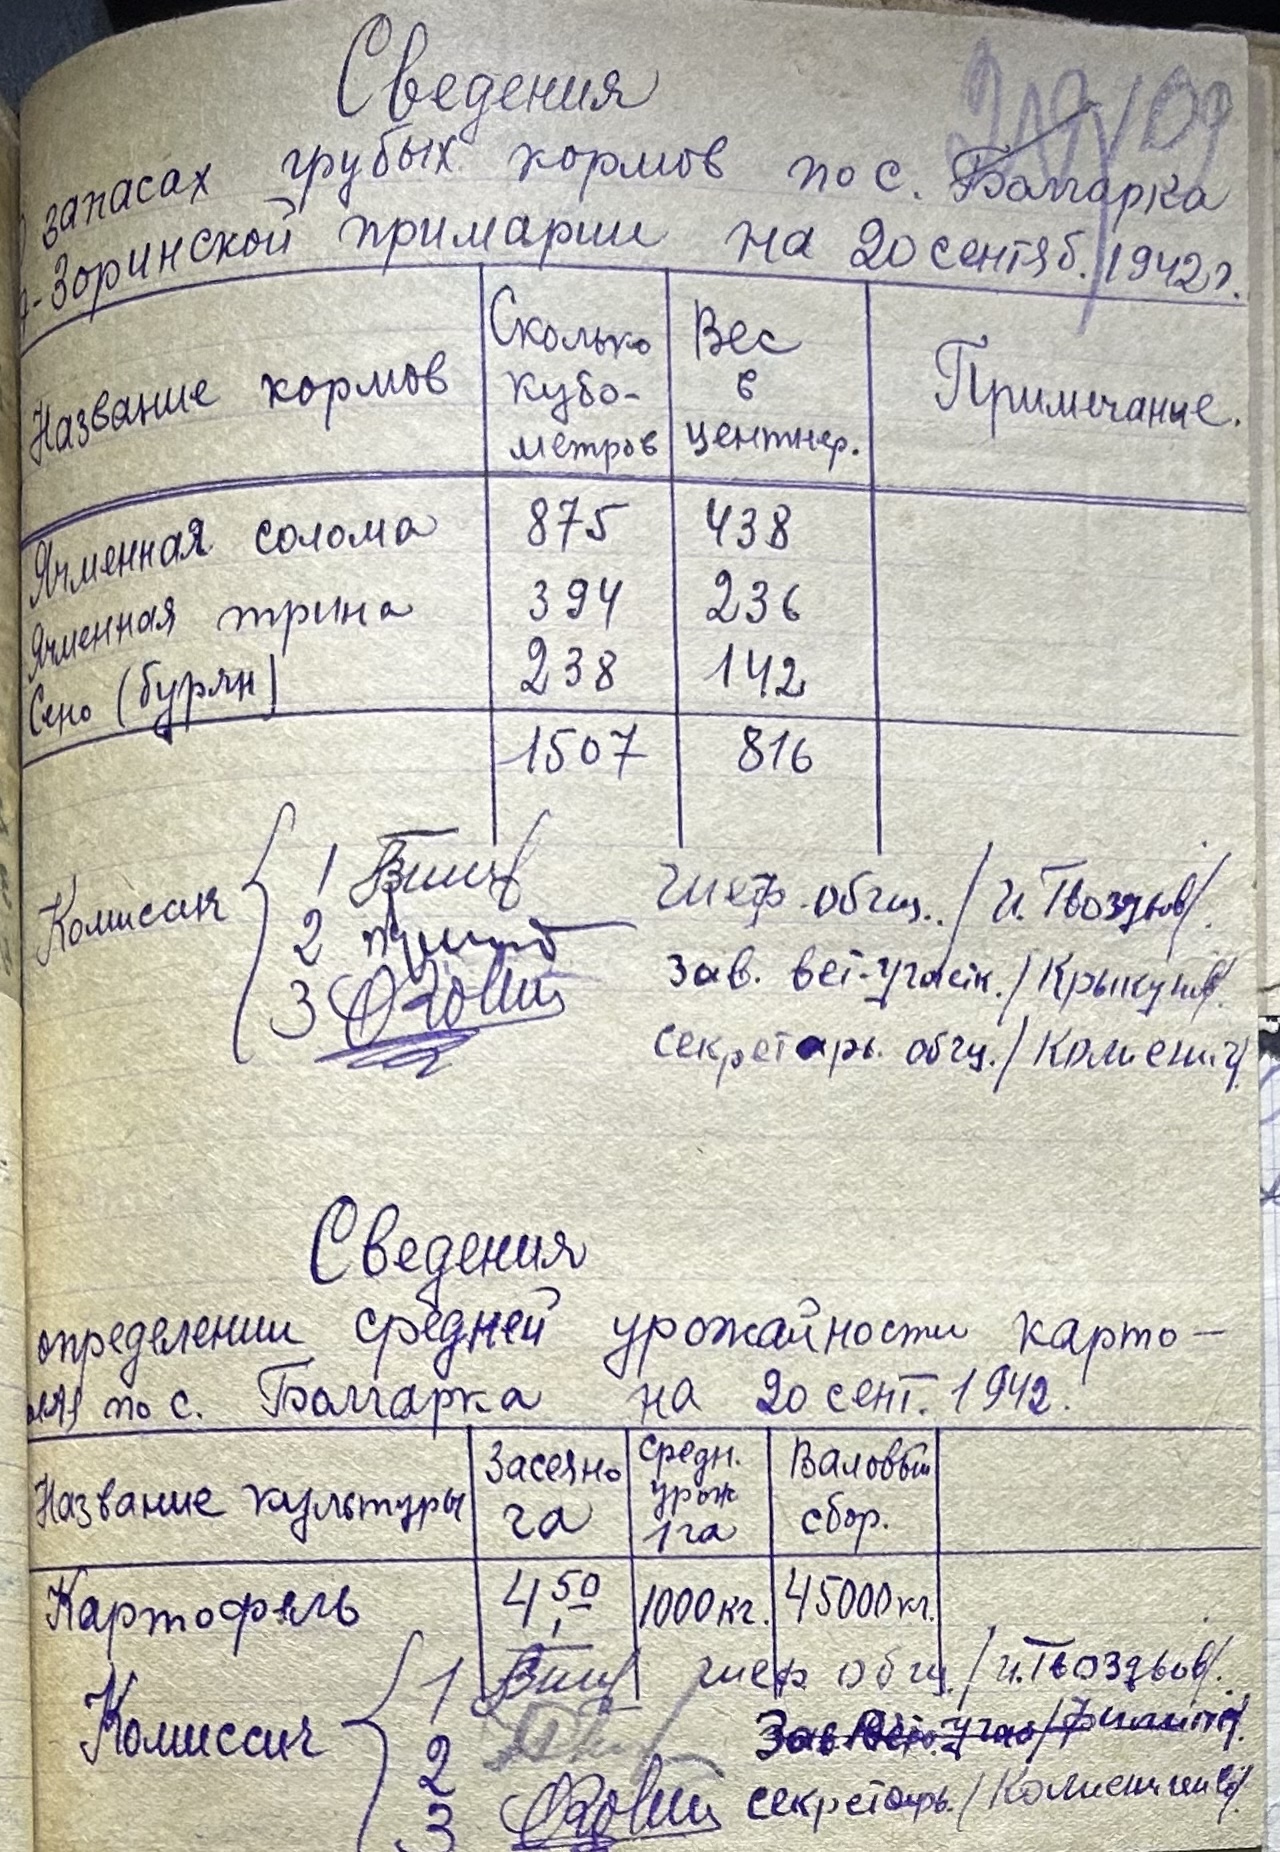 Сведения
запасах грубых кормов по с. Болгарка
-Зоринской примарии на 20 сентяб. 1942 г.
Название кормов Сколько кубо-метров Вес в центнер. Примечание.
Ячменная солома 875 438
Ячменная трина 394 236
Сено (бурян) 238 142
1507 816
Комисия
1 шеф. общ. / И. Гвоздьов /.
2 зав. вет-участк. / Крыкунов /.
3 секретарь общ. /
Сведения
определении средней урожайности карто-
по с. Болгарка на 20 сент. 1942.
Название культуры Засеяно га Средн. урож 1 га Валовый сбор.
Картофель 4,50 1000 кг. 45000 кг.
Комиссия
1 шеф общ. / И. Гвоздьов /.
2
3 секретарь. /